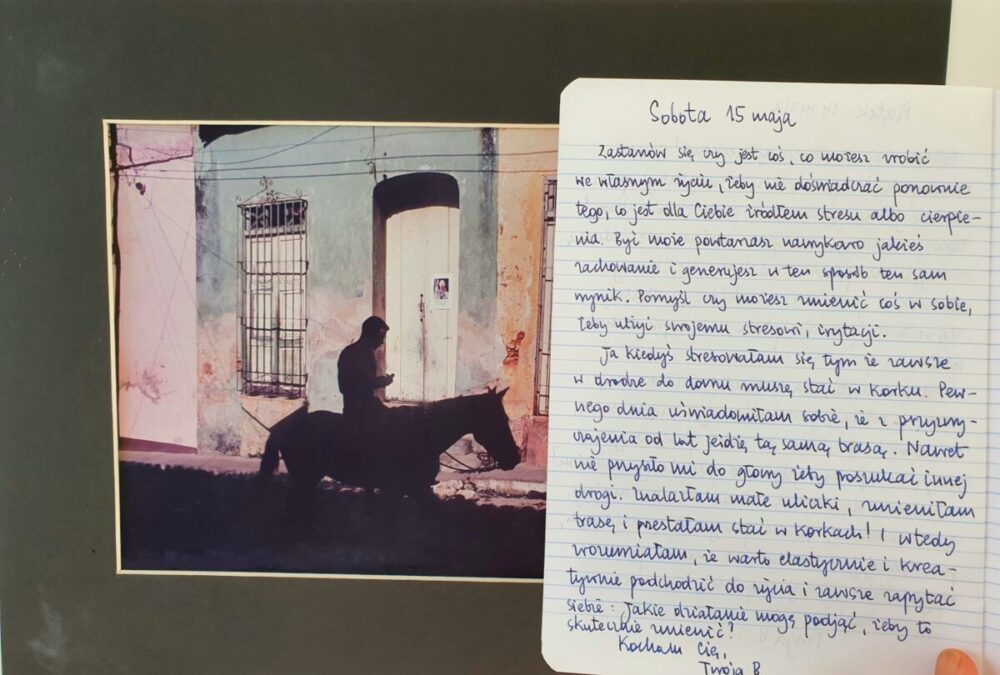 Sobota 15 maja
Zastanów się czy jest coś, co możesz zrobić
we własnym życiu, żeby nie doświadczać ponownie
tego, co jest dla Ciebie źródłem stresu albo cierpie-
nia. Być może powtarzasz nawykowo jakieś
zachowanie i generujesz w ten sposób ten sam
wynik. Pomyśl czy możesz zmienić coś w sobie,
żeby ulżyć swojemu stresowi, irytacji.
Ja kiedyś stresowałam się tym że zawsze
w drodze do domu muszę stać w korku. Pew-
nego dnia uświadomiłam sobie, że z przyzwy-
czajenia od lat jeżdżę tą samą trasą. Nawet
nie przyszło mi do głowy żeby poszukać innej
drogi. Znalazłam małe uliczki, zmieniłam
trasę i przestałam stać w korkach! I wtedy
zrozumiałam, że warto elastycznie i krea-
tywnie podchodzić do życia i zawsze zapytać
siebie: Jakie działanie mogę podjąć, żeby to
skutecznie zmienić?
Kocham Cię,
Twoja B